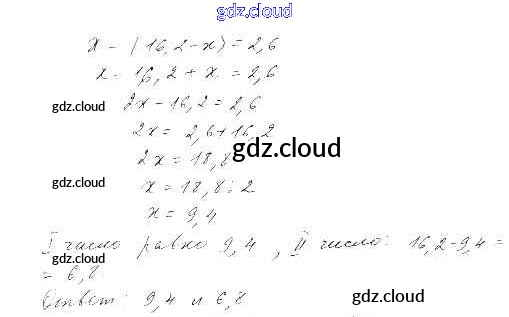 gdz.cloud
x - (16,2 - x) = 2,6
x - 16,2 + x = 2,6
gdz.cloud
2x - 16,2 = 2,6
2x = 2,6 + 16,2
gdz.cloud
2x = 18,8
gdz.cloud
x = 18,8 : 2
x = 9,4
I число равно 9,4, II число: 16,2 - 9,4 =
gdz.cloud
= 6,8
Ответ: 9,4 и 6,8
gdz.cloud